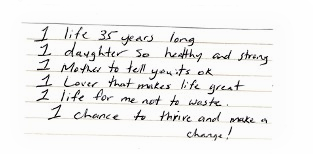 1 life 35 years long
1 daughter so healthy and strong
1 Mother to tell you its ok
1 Lover that makes life great
1 life for me not to waste.
1 chance to thrive and make a
change!